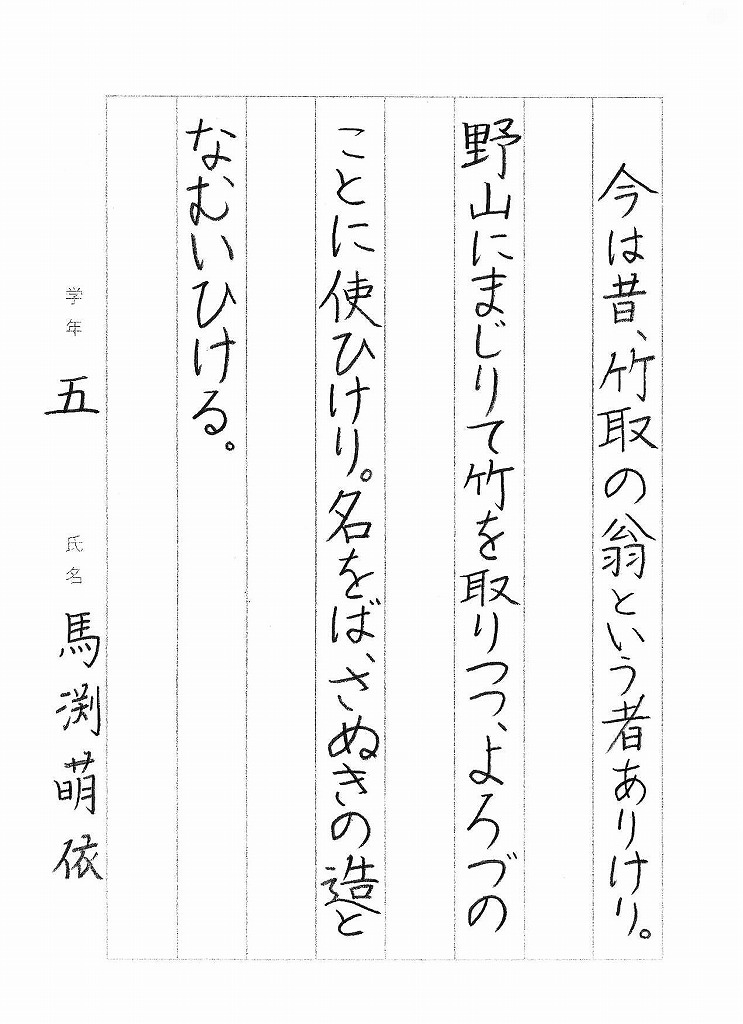 今は昔、竹取の翁という者ありけり。
野山にまじりて竹を取りつつ、よろづの
ことに使ひけり。名をば、さぬきの造と
なむいひける。
学年 五 氏名 馬渕萌依